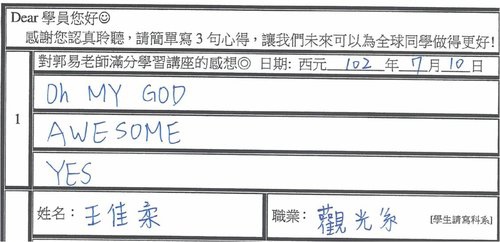 Dear 學員您好☺
感謝您認真聆聽，請簡單寫 3 句心得，讓我們未來可以為全球同學做得更好!
對郭易老師滿分學習講座的感想◎ 日期: 西元 102 年 7 月 10 日
1
Oh MY GOD
AWESOME
YES
姓名: 王佳柔 職業: 觀光系 [學生請寫科系]